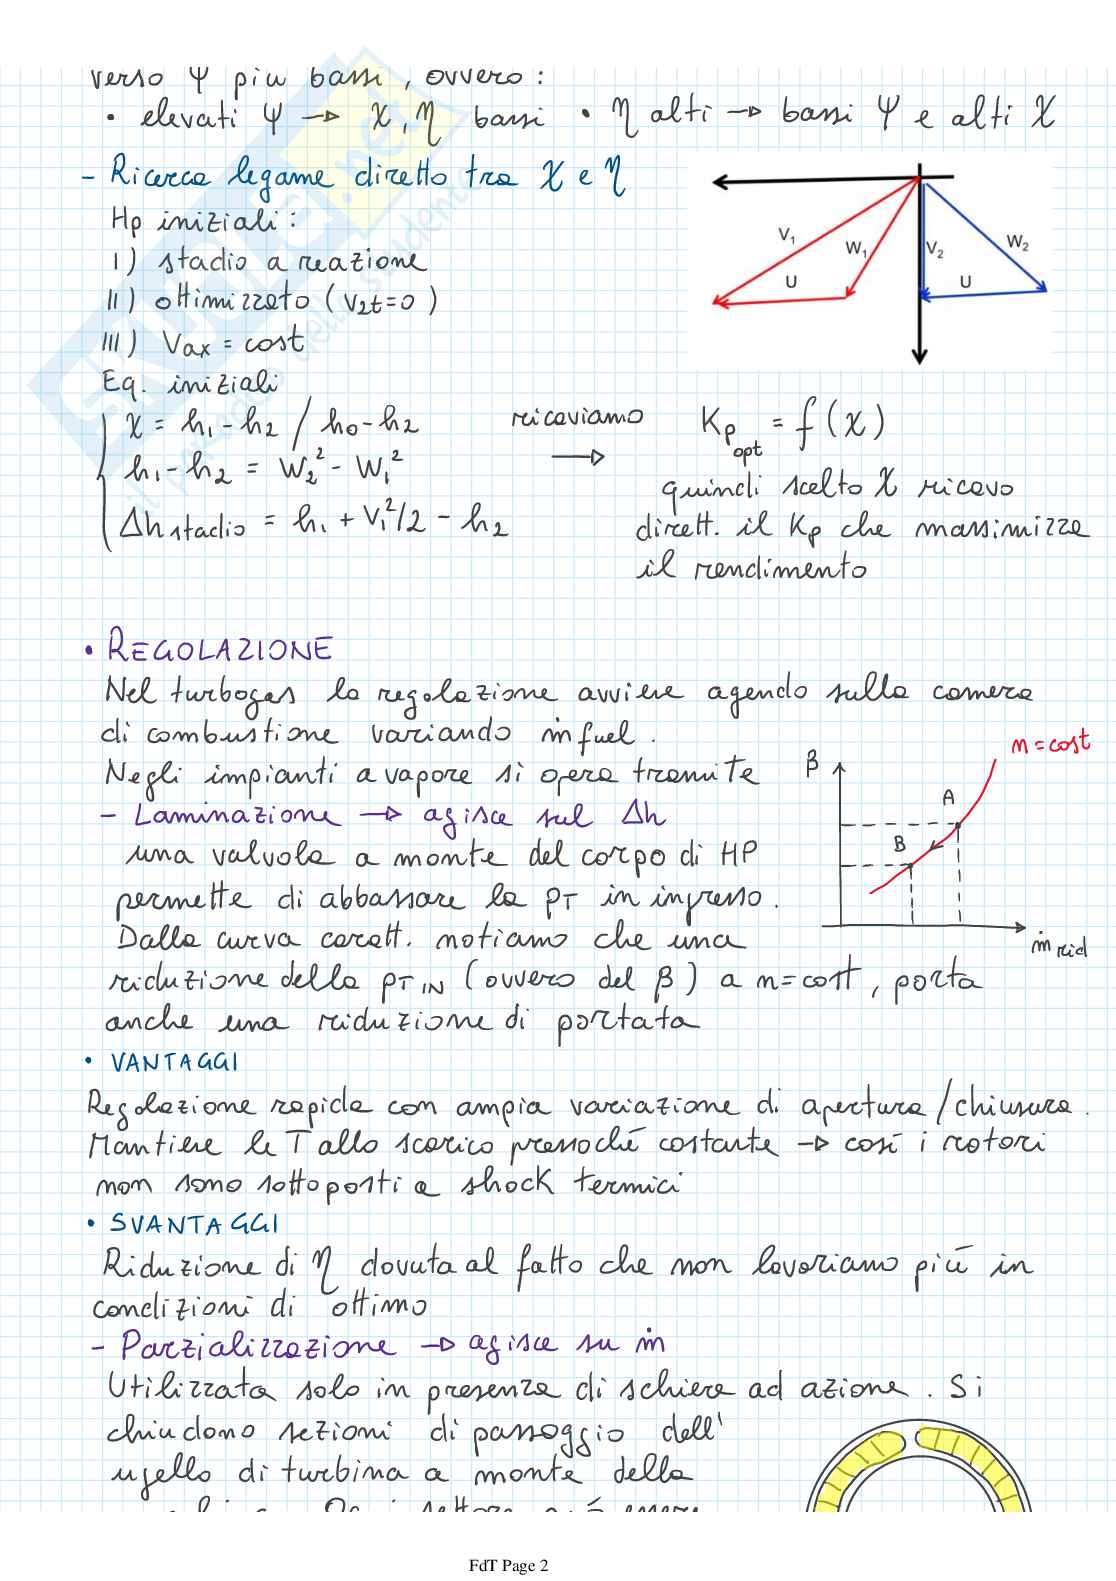 verso Ψ più bassi, ovvero:
• elevati Ψ → χ, η bassi • η alti → bassi Ψ e alti χ
- Ricerca legame diretto tra χ e η
Hp iniziali:
I) stadio a reazione
II) ottimizzato (V2t=0)
III) Vax = cost
Eq. iniziali
χ = h1-h2 / h0-h2
h1-h2 = W2² - W1²
Δh stadio = h1 + V1²/2 - h2
ricaviamo
→
Kp opt = f(χ)
quindi scelto χ ricavo
dirett. il Kp che massimizza
il rendimento
V1
W1
V2
W2
U
U
• REGOLAZIONE
Nel turbogas la regolazione avviene agendo sulla camera
di combustione variando ṁ fuel.
Negli impianti a vapore si opera tramite
- Laminazione → agisce sul Δh
una valvola a monte del corpo di HP
permette di abbassare la pT in ingresso.
Dalla curva caratt. notiamo che una
riduzione della pT IN (ovvero del β) a n=cost, porta
anche una riduzione di portata
β
n=cost
A
B
ṁ rid
• VANTAGGI
Regolazione rapida con ampia variazione di apertura/chiusura.
Mantiene le T allo scarico pressoché costante → così i rotori
non sono sottoposti a shock termici
• SVANTAGGI
Riduzione di η dovuta al fatto che non lavoriamo più in
condizioni di ottimo
- Parzializzazione → agisce su ṁ
Utilizzata solo in presenza di schiere ad azione. Si
chiudono sezioni di passaggio dell'
ugello di turbina a monte della
FdT Page 2